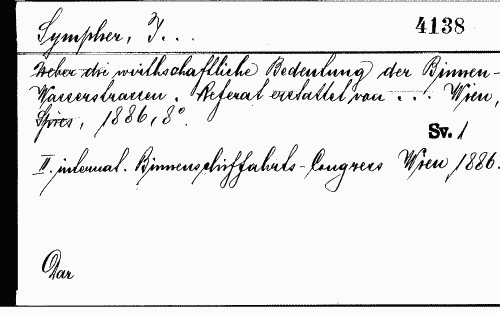 Sympher, J...
4138
Ueber die wirthschaftliche Bedeutung der Binnen-
Wasserstrassen. Referat erstattet von ... Wien,
Spies, 1886, 8°.
Sv. 1
II. internat. Binnenschiffahrts-Congress Wien 1886.
Dar